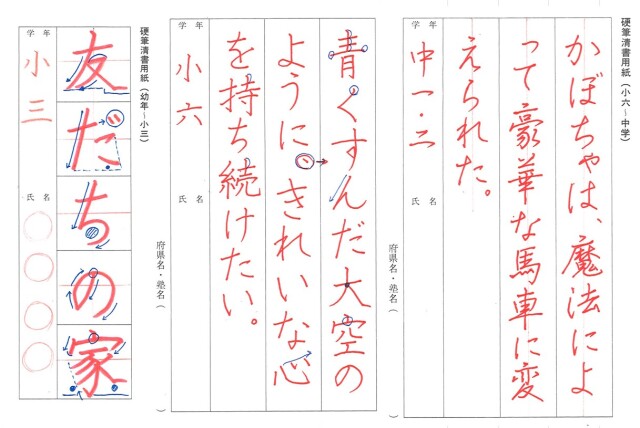 硬筆清書用紙（小六〜中学）
かぼちゃは、魔法によ
って豪華な馬車に変
えられた。
学年
中一・二
氏名
府県名・塾名（　）
青くすんだ大空の
ように、きれいな心
を持ち続けたい。
学年
小六
氏名
府県名・塾名（　）
硬筆清書用紙（幼年〜小三）
友だちの家
学年
小三
氏名
〇〇〇〇